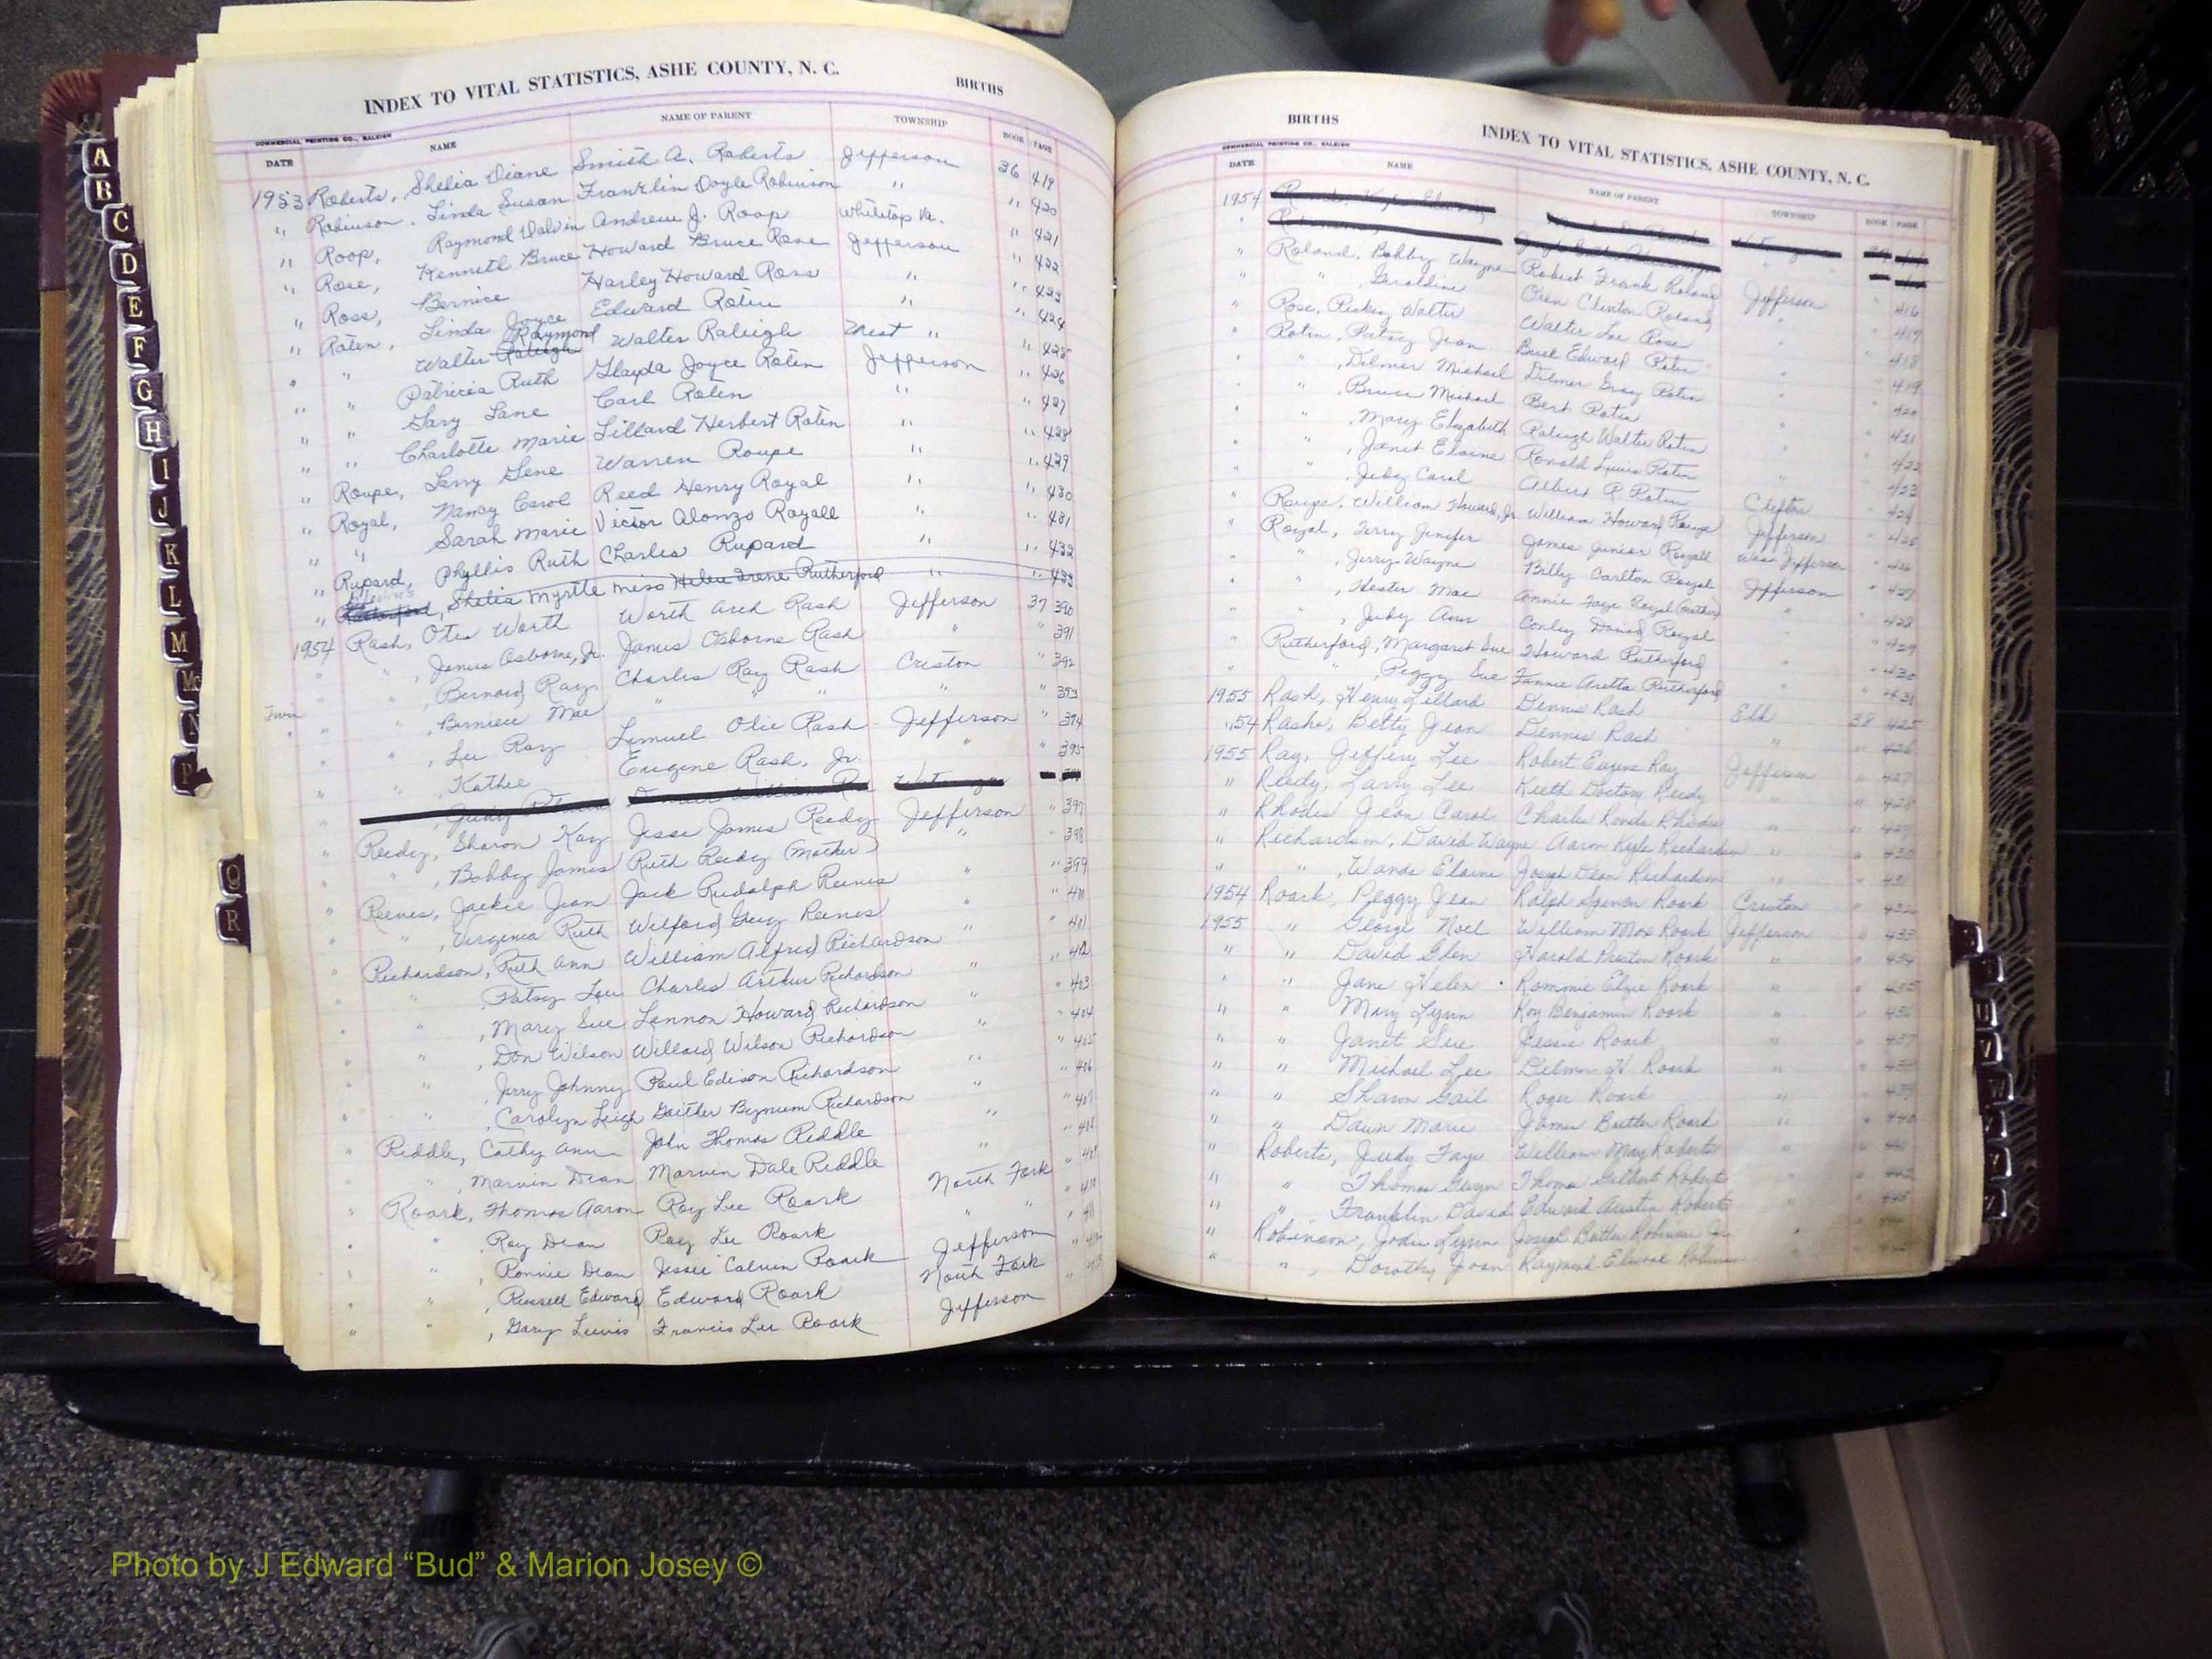 INDEX TO VITAL STATISTICS, ASHE COUNTY, N. C. BIRTHS
COMMERCIAL PRINTING CO., RALEIGH
DATE NAME NAME OF PARENT TOWNSHIP BOOK PAGE
1953 Roberts, Shelia Diane Smith A. Roberts Jefferson 36 419
" Robinson, Linda Susan Franklin Doyle Robinson " " 420
" Roop, Raymond Dalvin Andrew J. Roop Whitetop Va. " 421
" Rose, Kenneth Bruce Howard Bruce Rose Jefferson " 422
" Ross, Bernice Harley Howard Ross " " 423
" Roten, Linda Joyce Edward Roten " " 424
" " Walter Raleigh Raymond Walter Raleigh West " " 425
" " Patricia Ruth Glayda Joyce Roten Jefferson " 426
" " Gary Lane Carl Roten " " 427
" " Charlotte Marie Lillard Herbert Roten " " 428
" Roupe, Larry Gene Warren Roupe " " 429
" Royal, Nancy Carol Reed Henry Royal " " 430
" " Sarah Marie Victor Alonzo Royall " " 431
" Rupard, Phyllis Ruth Charles Rupard " " 432
" Rutherford, Shelia Myrtle Miss Helen Irene Rutherford " " 433
1954 Rash, Otis Worth Worth Arch Rash Jefferson 37 390
" " , James Osborne, Jr. James Osborne Rash " " 391
" " , Bernard Ray Charles Ray Rash Creston " 392
Twin " " , Bernice Mae " " " " " 393
" " , Lee Ray Lemuel Olie Rash Jefferson " 394
" " , Kathee Eugene Rash, Jr. " " 395
" , Judy
" Reedy, Sharon Kay Jesse James Reedy Jefferson " 397
" " , Bobby James Ruth Reedy (Mother) " " 398
" Reeves, Jackie Jean Jack Rudolph Reeves " " 399
" " , Virginia Ruth Wilford Guy Reeves " " 400
" Richardson, Ruth Ann William Alfred Richardson " " 401
" " , Patsy Lou Charles Arthur Richardson " " 402
" " , Mary Sue Lennon Howard Richardson " " 403
" " , Don Wilson Willard Wilson Richardson " " 404
" " , Jerry Johnny Paul Edison Richardson " " 405
" " , Carolyn Leigh Gaither Bynum Richardson " " 406
" Riddle, Cathy Ann John Thomas Riddle " " 407
" " , Marvin Dean Marvin Dale Riddle " " 408
" Roark, Thomas Aaron Roy Lee Roark North Fork " 409
" " , Roy Dean Roy Lee Roark " " 410
" " , Ronnie Dean Jessie Calvin Roark Jefferson " 411
" " , Russell Edward Edward Roark North Fork "
" " , Gary Lewis Francis Lee Roark Jefferson "
BIRTHS INDEX TO VITAL STATISTICS, ASHE COUNTY, N. C.
COMMERCIAL PRINTING CO., RALEIGH
DATE NAME NAME OF PARENT TOWNSHIP BOOK PAGE
1954
" Roland, Bobby Wayne Robert Frank Roland Jefferson " 416
" " , Geraldine Oren Clinton Roland " " 417
" Rose, Rickey Walter Walter Lee Rose " " 418
" Roten, Patsy Jean Burl Edward Roten " " 419
" " , Dilmer Michael Dilmer Gray Roten " " 420
" " , Bruce Michael Bert Roten " " 421
" " , Mary Elizabeth Raleigh Walter Roten " " 422
" " , Janet Elaine Ronald Lewis Roten " " 423
" " , Judy Carol Albert R. Roten Clifton " 424
" Roupe, William Howard, Jr. William Howard Roupe Jefferson " 425
" Royal, Terry Jenifer James Junior Royall West Jefferson " 426
" " , Jerry Wayne Billy Carlton Royal Jefferson " 427
" " , Hester Mae Annie Faye Royal (Mother) " " 428
" " , Judy Ann Conley David Royal " " 429
" Rutherford, Margaret Sue Howard Rutherford " " 430
" " , Peggy Sue Fannie Aretta Rutherford " " 431
1955 Rash, Henry Lillard Dennis Rash Elk 38 425
" 54 Rash, Betty Jean Dennis Rash " " 426
1955 Ray, Jeffery Lee Robert Eugene Ray Jefferson " 427
" Reedy, Larry Lee Kieth Doctory Reedy " " 428
" Rhodes Jean Carol Charles Ronda Rhodes " " 429
" Richardson, David Wayne Aaron Kyle Richardson " " 430
" " , Wanda Elaine Joseph Dean Richardson " " 431
1954 Roark, Peggy Jean Ralph Spencer Roark Creston " 432
1955 " George Noel William Max Roark Jefferson " 433
" " David Glen Harold Preston Roark " " 434
" " Jane Helen Rommie Elzie Roark " " 435
" " Mary Lynn Roy Benjamin Roark " " 436
" " Janet Sue Jessie Roark " " 437
" " Michael Lee Dilmer H. Roark " " 438
" " Sharon Gail Roger Roark " " 439
" " Dawn Marie James Butler Roark " " 440
" Roberts, Judy Faye William May Roberts " " 441
" " Thomas Gwyn Thomas Gilbert Roberts " " 442
" " Franklin David Edward Austin Roberts " " 443
" Robinson, Jodie Lynn Joseph Butler Robinson Jr. "
" " , Dorothy Joan Raymond Elwood Robinson "
A
B
C
D
E
F
G
H
I
J
K
L
M
Mc
N
P
Q
R
Photo by J Edward “Bud” & Marion Josey ©